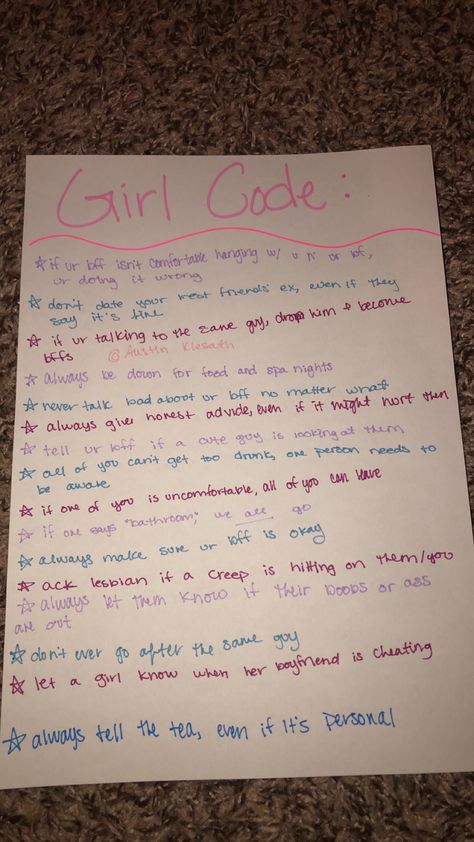 Girl Code:
☆ if ur bff isn't comfortable hanging w/ u n' ur bf,
ur doing it wrong
☆ don't date your best friends' ex, even if they
say it's fine
☆ if ur talking to the same guy, drop him & become
bffs @Austin
☆ always be down for food and spa nights
☆ never talk bad about ur bff no matter what
☆ always give honest advide, even if it might hurt them
☆ tell ur bff if a cute guy is looking at them,
☆ all of you can't get too drunk, one person needs to
be aware
☆ if one of you is uncomfortable, all of you can leave
☆ if one says "bathroom", we all go
☆ always make sure ur bff is okay
☆ ack lesbian if a creep is hitting on them/you
☆ always let them know if their boobs or ass
are out
☆ don't ever go after the same guy
☆ let a girl know when her boyfriend is cheating
☆ always tell the tea, even if it's personal